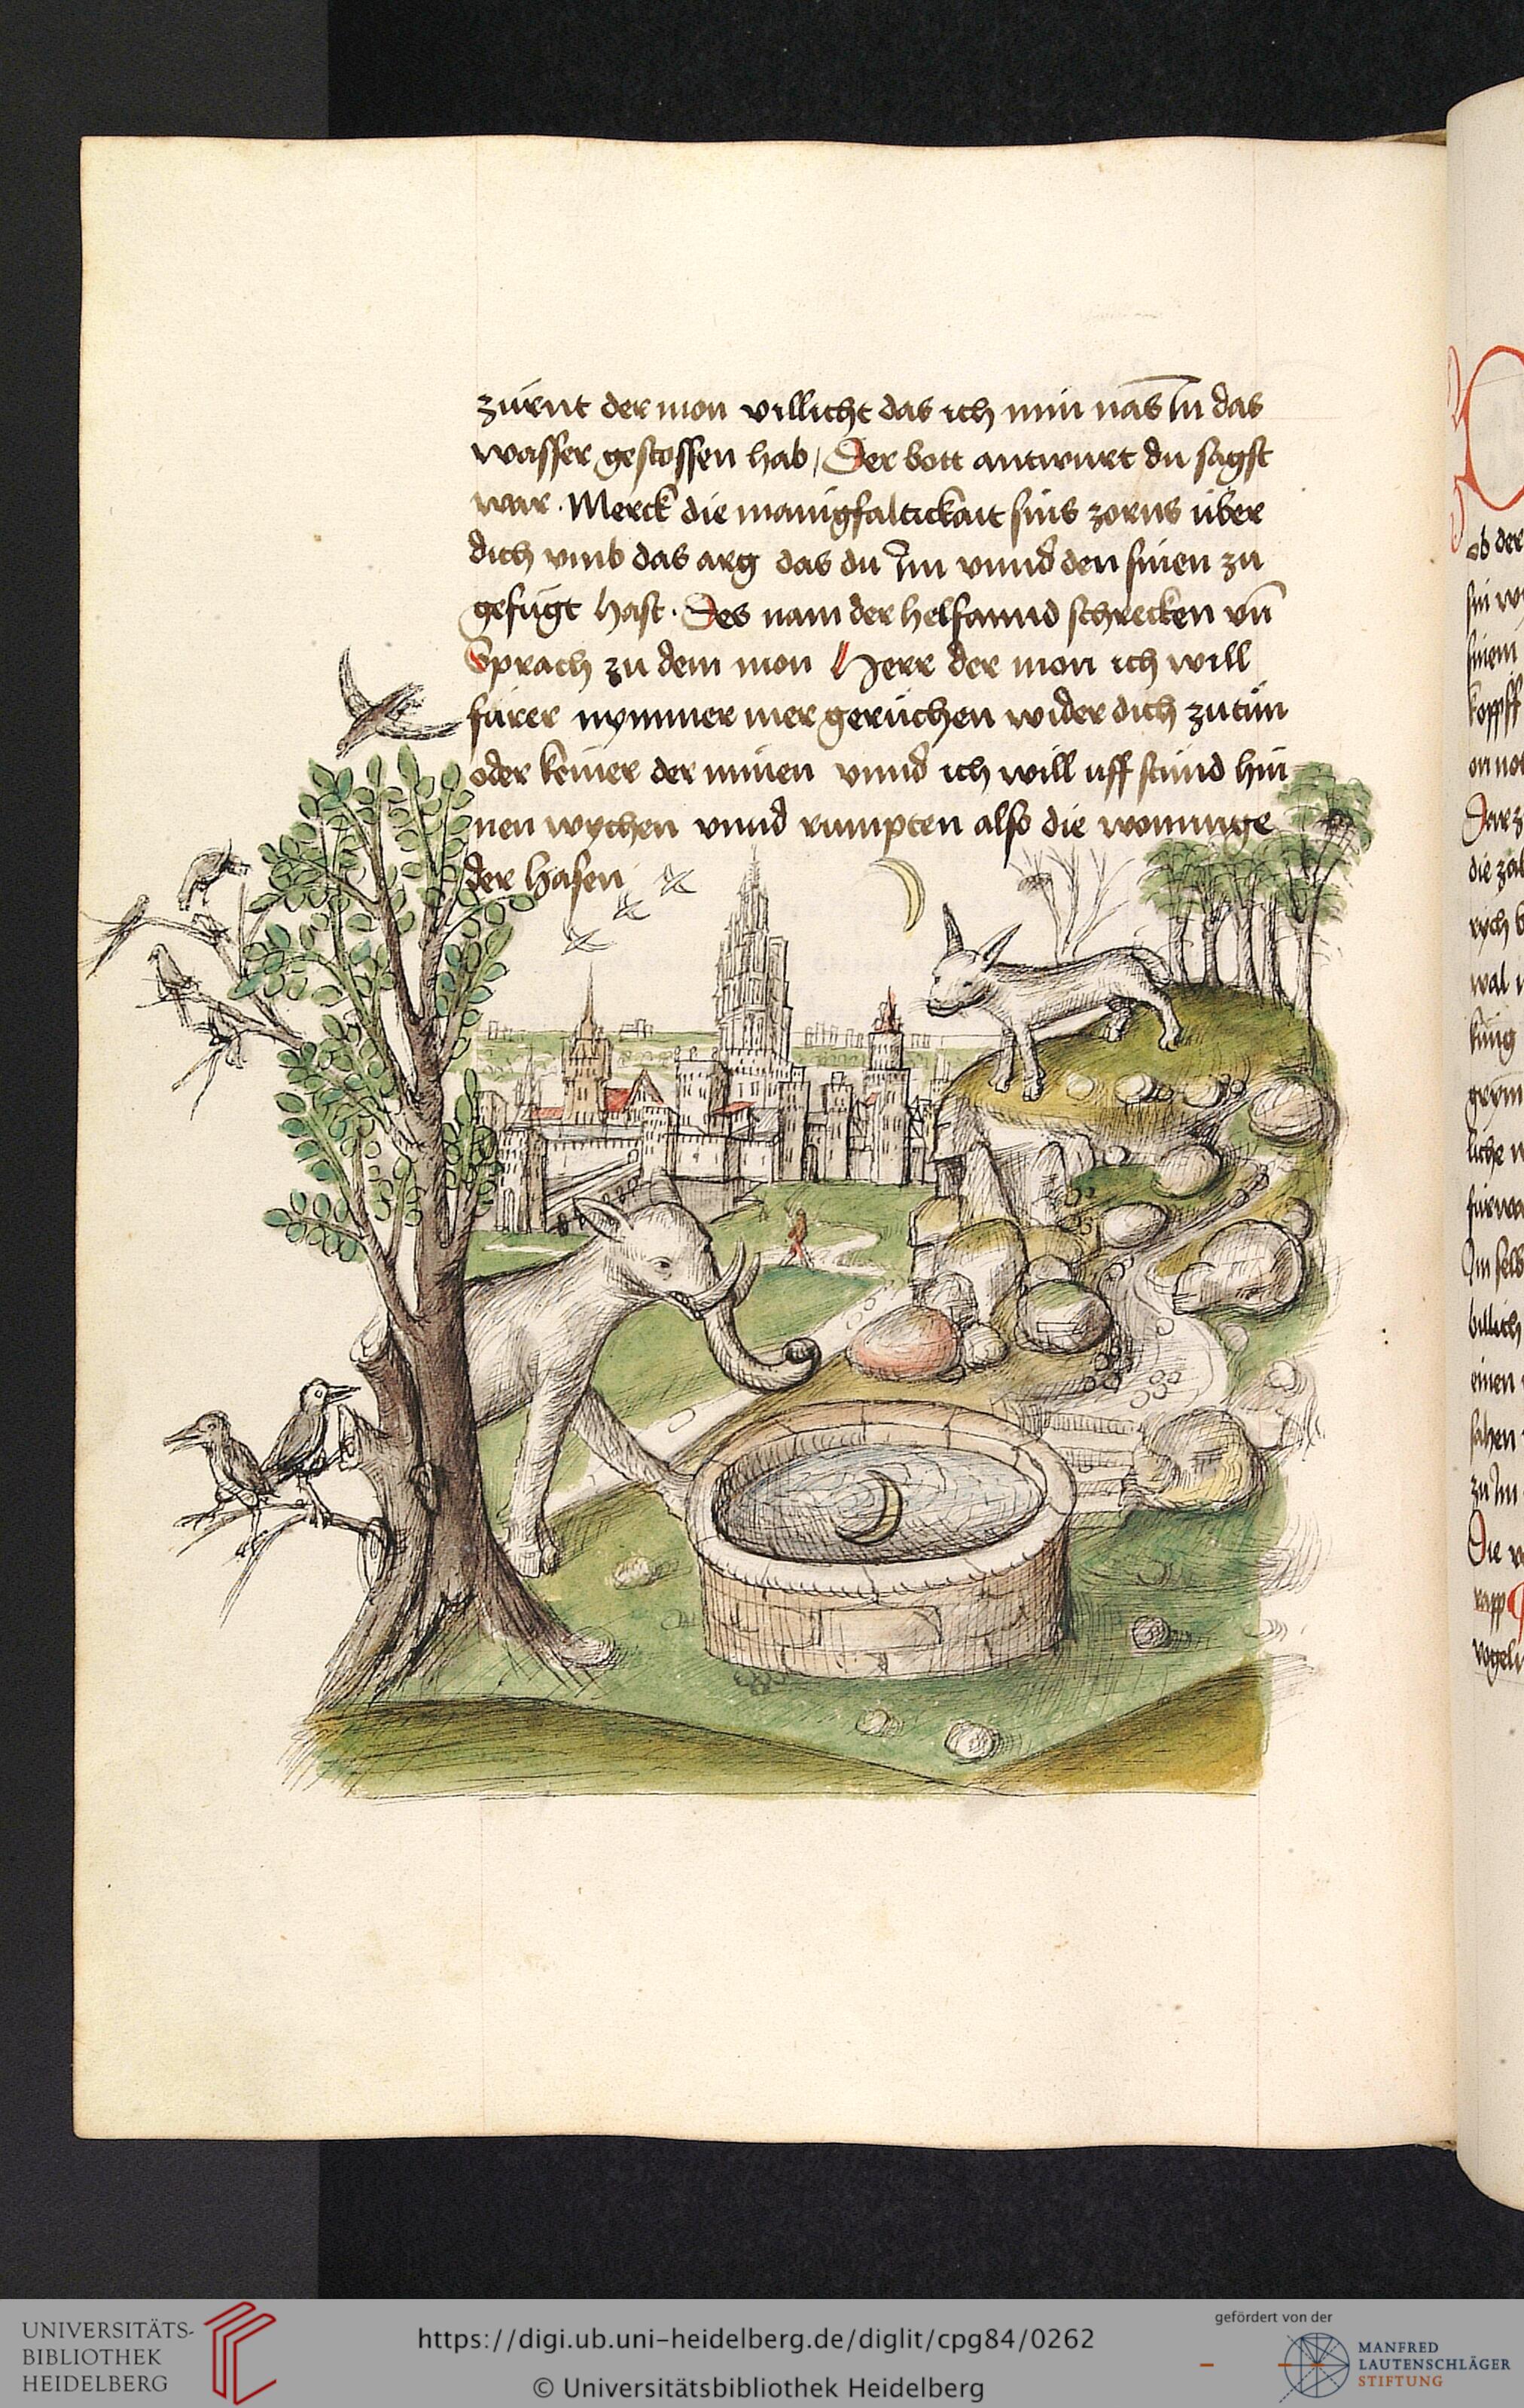 zúrnt der mon villicht das ich min nas In das
wasser gestossen hab / Der bott antwurt du sagst
war . Merck die manigfaltickait sins zorns über
dich vmb das arg das du Im vnnd den sinen zu
gefügt hast . Des nam der helfannd schrecken vn̄
Sprach zu dem mon Herr der mon ich will
fürer nymmer mer geruchen wider dich zutůn
oder keiner der minen vnnd ich will uff stund hin
nen wychen vnnd rumpten also die wonunge
der hasen
ob der
sin
sinem
kopff
on not
Dar z
die zal
rych b
wal
küng
liche
für wa
Im selb
billich
einen
sahen
zu Im
Die
rapp
vogel
UNIVERSITÄTS-
BIBLIOTHEK
HEIDELBERG
https://digi.ub.uni-heidelberg.de/diglit/cpg84/0262
© Universitätsbibliothek Heidelberg
gefördert von der
MANFRED
LAUTENSCHLÄGER
STIFTUNG